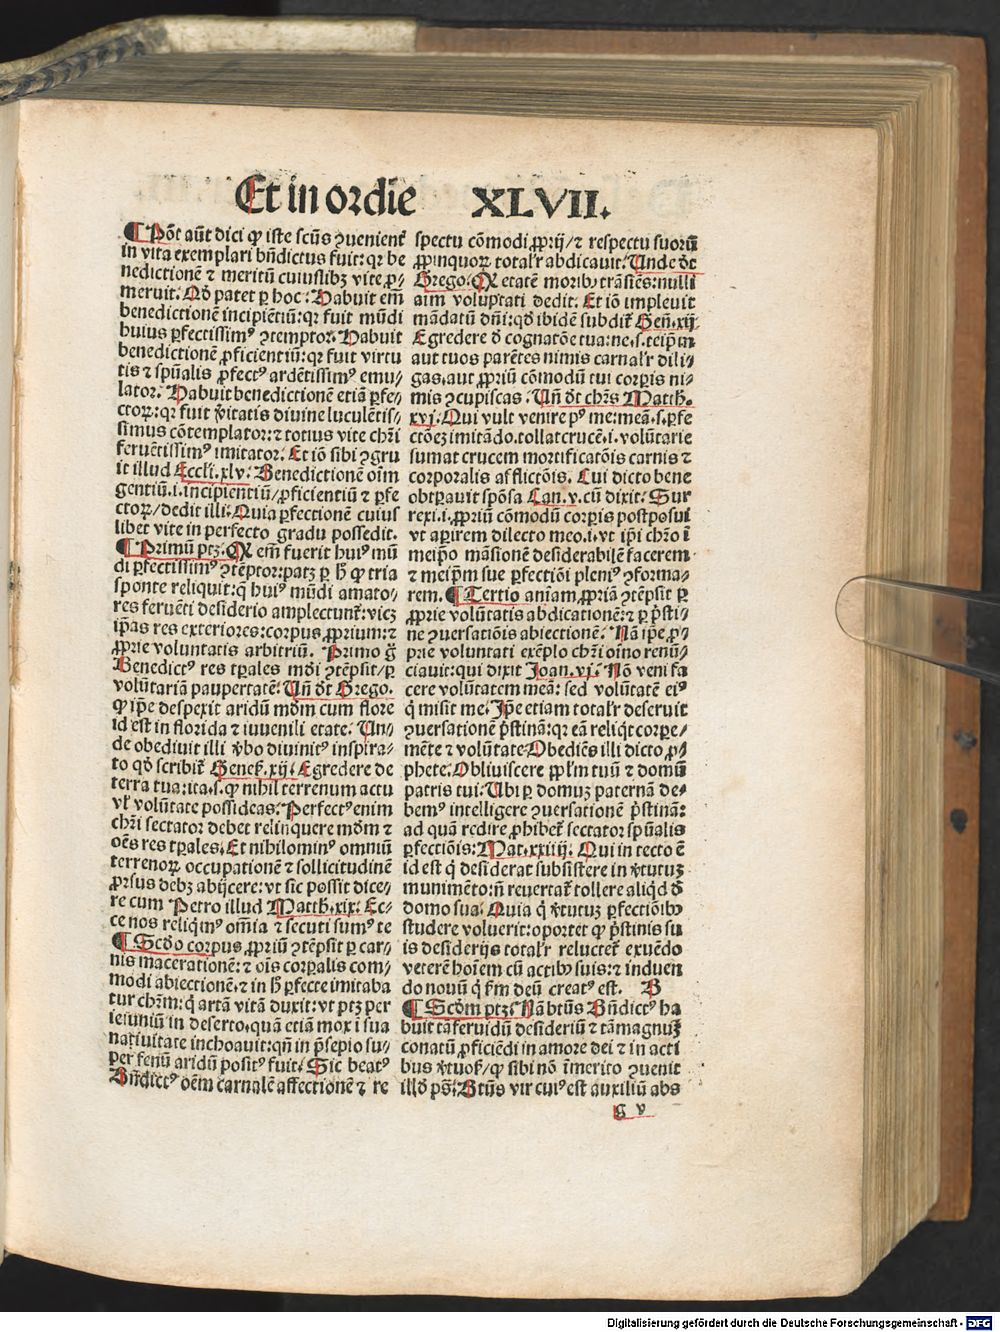 Et in ordie XLVII.
¶ Põt aũt dici ꝙ iste scũs ꝯuenient̃
in vita exemplari bñdictus fuit: qꝛ be
nedictionẽ ⁊ meritũ cuiuslibꝫ vite ꝓ-
meruit. Qđ patet ꝑ hoc: Habuit em̃
benedictionẽ incipiẽtiũ: qꝛ fuit mũdi
huius ꝑfectissimꝰ ꝯtemptor. Habuit
benedictionẽ ꝓficientiũ: qꝛ fuit virtu
tis ⁊ spũalis ꝓfectꝰ ardẽtissimꝰ emu/
lator. Habuit benedictionẽ etiã ꝑfe-
ctoꝝ: qꝛ fuit ṽitatis diuine luculẽtis/
simus cõtemplator: ⁊ totius vite chr̃i
feruẽtissimꝰ imitator. Et iõ sibi ꝯgru
it illud Eccłi. xlv. Benedictionẽ oĩm
gentiũ .i. incipientiũ/ ꝓficientiũ ⁊ ꝑfe
ctoꝝ/ dedit illi. Quia ꝑfectionẽ cuius
libet vite in perfecto gradu possedit.
¶ Primũ ptꝫ. Qꝛ em̃ fuerit huiꝰ mũ
di ꝑfectissimꝰ ꝯtẽptor: patꝫ ꝑ h̃ ꝙ tria
sponte reliquit: q̃ huiꝰ mũdi amato/
res feruẽti desiderio amplectunt̃: vicꝫ
ip̃as res exteriores: corpus ꝓprium: ⁊
ꝓprie voluntatis arbitriũ. Primo g̃
Benedictꝰ res tꝑales mũdi ꝯtẽpsit/ ꝑ
volũtariã paupertatẽ. Uñ đt Grego.
ꝙ ip̃e despexit aridũ mũdm cum flore
id est in florida ⁊ iuuenili etate. Un/
de obediuit illi ṽbo diuinitꝰ inspira/
to qđ scribit̃ Geneẞ. xij. Egredere de
terra tua: ita .s. ꝙ nihil terrenum actu
vł volũtate possideas. Perfectꝰ enim
chr̃i sectator debet relinquere mũdm ⁊
oẽs res tꝑales. Et nihilominꝰ omniũ
terrenoꝝ occupationẽ ⁊ sollicitudinẽ
ꝓrsus debꝫ abijcere: vt sic possit dice/
re cum Petro illud Matth̃. xix. Ec-
ce nos reliq̃mꝰ om̃ia ⁊ secuti sumꝰ te
¶ Scđo corpus ꝓpriũ ꝯtẽpsit ꝑ car-
nis macerationẽ: ⁊ oĩs corꝑalis com/
modi abiectionẽ. ⁊ in h̃ ꝑfecte imitaba
tur chr̃m: q̃ artã vitã duxit: vt ptꝫ per
ieiuniũ in deserto. quã etiã mox i sua
natiuitate inchoauit: qñ in p̃sepio su/
per fenũ aridũ positꝰ fuit. Sic beatꝰ
Bñdictꝰ oẽm carnalẽ affectionẽ ⁊ re
spectu cõmodi ꝓprij/ ⁊ respectu suorũ
ꝓpinquoꝝ total̃r abdicauit. Unde đt
Grego. Qꝛ etatẽ moribꝰ trãsiẽs: nulli
aĩm voluptati dedit. Et iõ impleuit
mãdatũ dñi: qđ ibidẽ subdit̃ Geñ. xij
Egredere đ cognatõe tua: ne .s. teip̃m
aut tuos parẽtes nimis carnal̃r dili/
gas. aut ꝓpriũ cõmodũ tui corꝑis ni-
mis ꝯcupiscas. Uñ đt chr̃s Matth̃.
xvj. Qui vult venire pꝰ me: meã .s. ꝑfe
ctõeꝫ imitãdo. tollat crucẽ .i. volũtarie
sumat crucem mortificatõis carnis ⁊
corporalis afflictõis. Cui dicto bene
obtꝑauit spõsa Can. v. cũ dixit: Sur
rexi .i. ꝓpriũ cõmodũ corꝑis postposui
vt aꝑirem dilecto meo .i. vt ip̃i chr̃o ĩ
meip̃o mãsionẽ desiderabilẽ facerem
⁊ meip̃m sue ꝑfectiõi pleniꝰ ꝯforma-
rem. ¶ Tertio aniam ꝓpriã ꝯtẽpsit ꝑ
ꝓprie volũtatis abdicationẽ: ⁊ ꝑ p̃sti/
ne ꝯuersatiõis abiectionẽ. Nã ip̃e ꝓ/
prie voluntati exẽplo chr̃i oĩno renũ/
ciauit: qui dixit Joan. vj. Nõ veni fa
cere volũtatem meã: sed volũtatẽ eiꝰ
q̃ misit me. Ip̃e etiam total̃r deseruit
ꝯuersationẽ p̃stinã: qꝛ eã reliq̃t corpe-
mẽte ⁊ volũtate. Obediẽs illi dicto ꝓ/
phete. Obliuiscere ppł̃m tuũ ⁊ domũ
patris tui. Ubi ꝑ domuꝫ paternã de-
bemꝰ intelligere ꝯuersationẽ p̃stinã:
ad quã redire ꝓhibet̃ sectator spũalis
ꝑfectiõis: Mat. xxiiij. Qui in tecto ẽ
id est q̃ desiderat subsistere in ṽtutuꝫ
munimẽto: ñ reuertat̃ tollere aliq̃d đ
domo sua. Quia q̃ ṽtutuꝫ ꝑfectiõibꝰ
studere voluerit: oportet ꝙ p̃stinis su
is desiderijs total̃r reluctet̃ exuẽdo
veterẽ hoĩem cũ actibꝰ suis: ⁊ induen
do nouũ q̃ fm̃ deũ creatꝰ est. B
¶ Scđm ptꝫ. Nã btũs Bñdictꝰ ha
buit tã feruidũ desideriũ ⁊ tã magnuꝫ
conatũ ꝓficiẽdi in amore dei ⁊ in acti
bus ṽtuoẞ/ ꝙ sibi nõ ĩmerito ꝯuenit
illđ pš. Btũs vir cuiꝰ est auxiliũ abs
g v
Digitalisierung gefördert durch die Deutsche Forschungsgemeinschaft - DFG